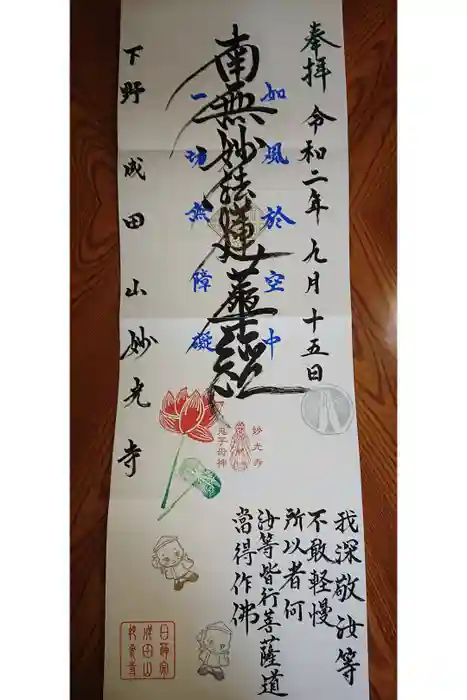 奉拝 令和二年九月十五日
南無妙法蓮華経
如風於空中
一切無障礙
下野 成田山妙光寺
妙光寺
鬼子母神
我深敬汝等
不敢軽慢
所以者何
汝等皆行菩薩道
當得作佛
日蓮宗
成田山
妙光寺